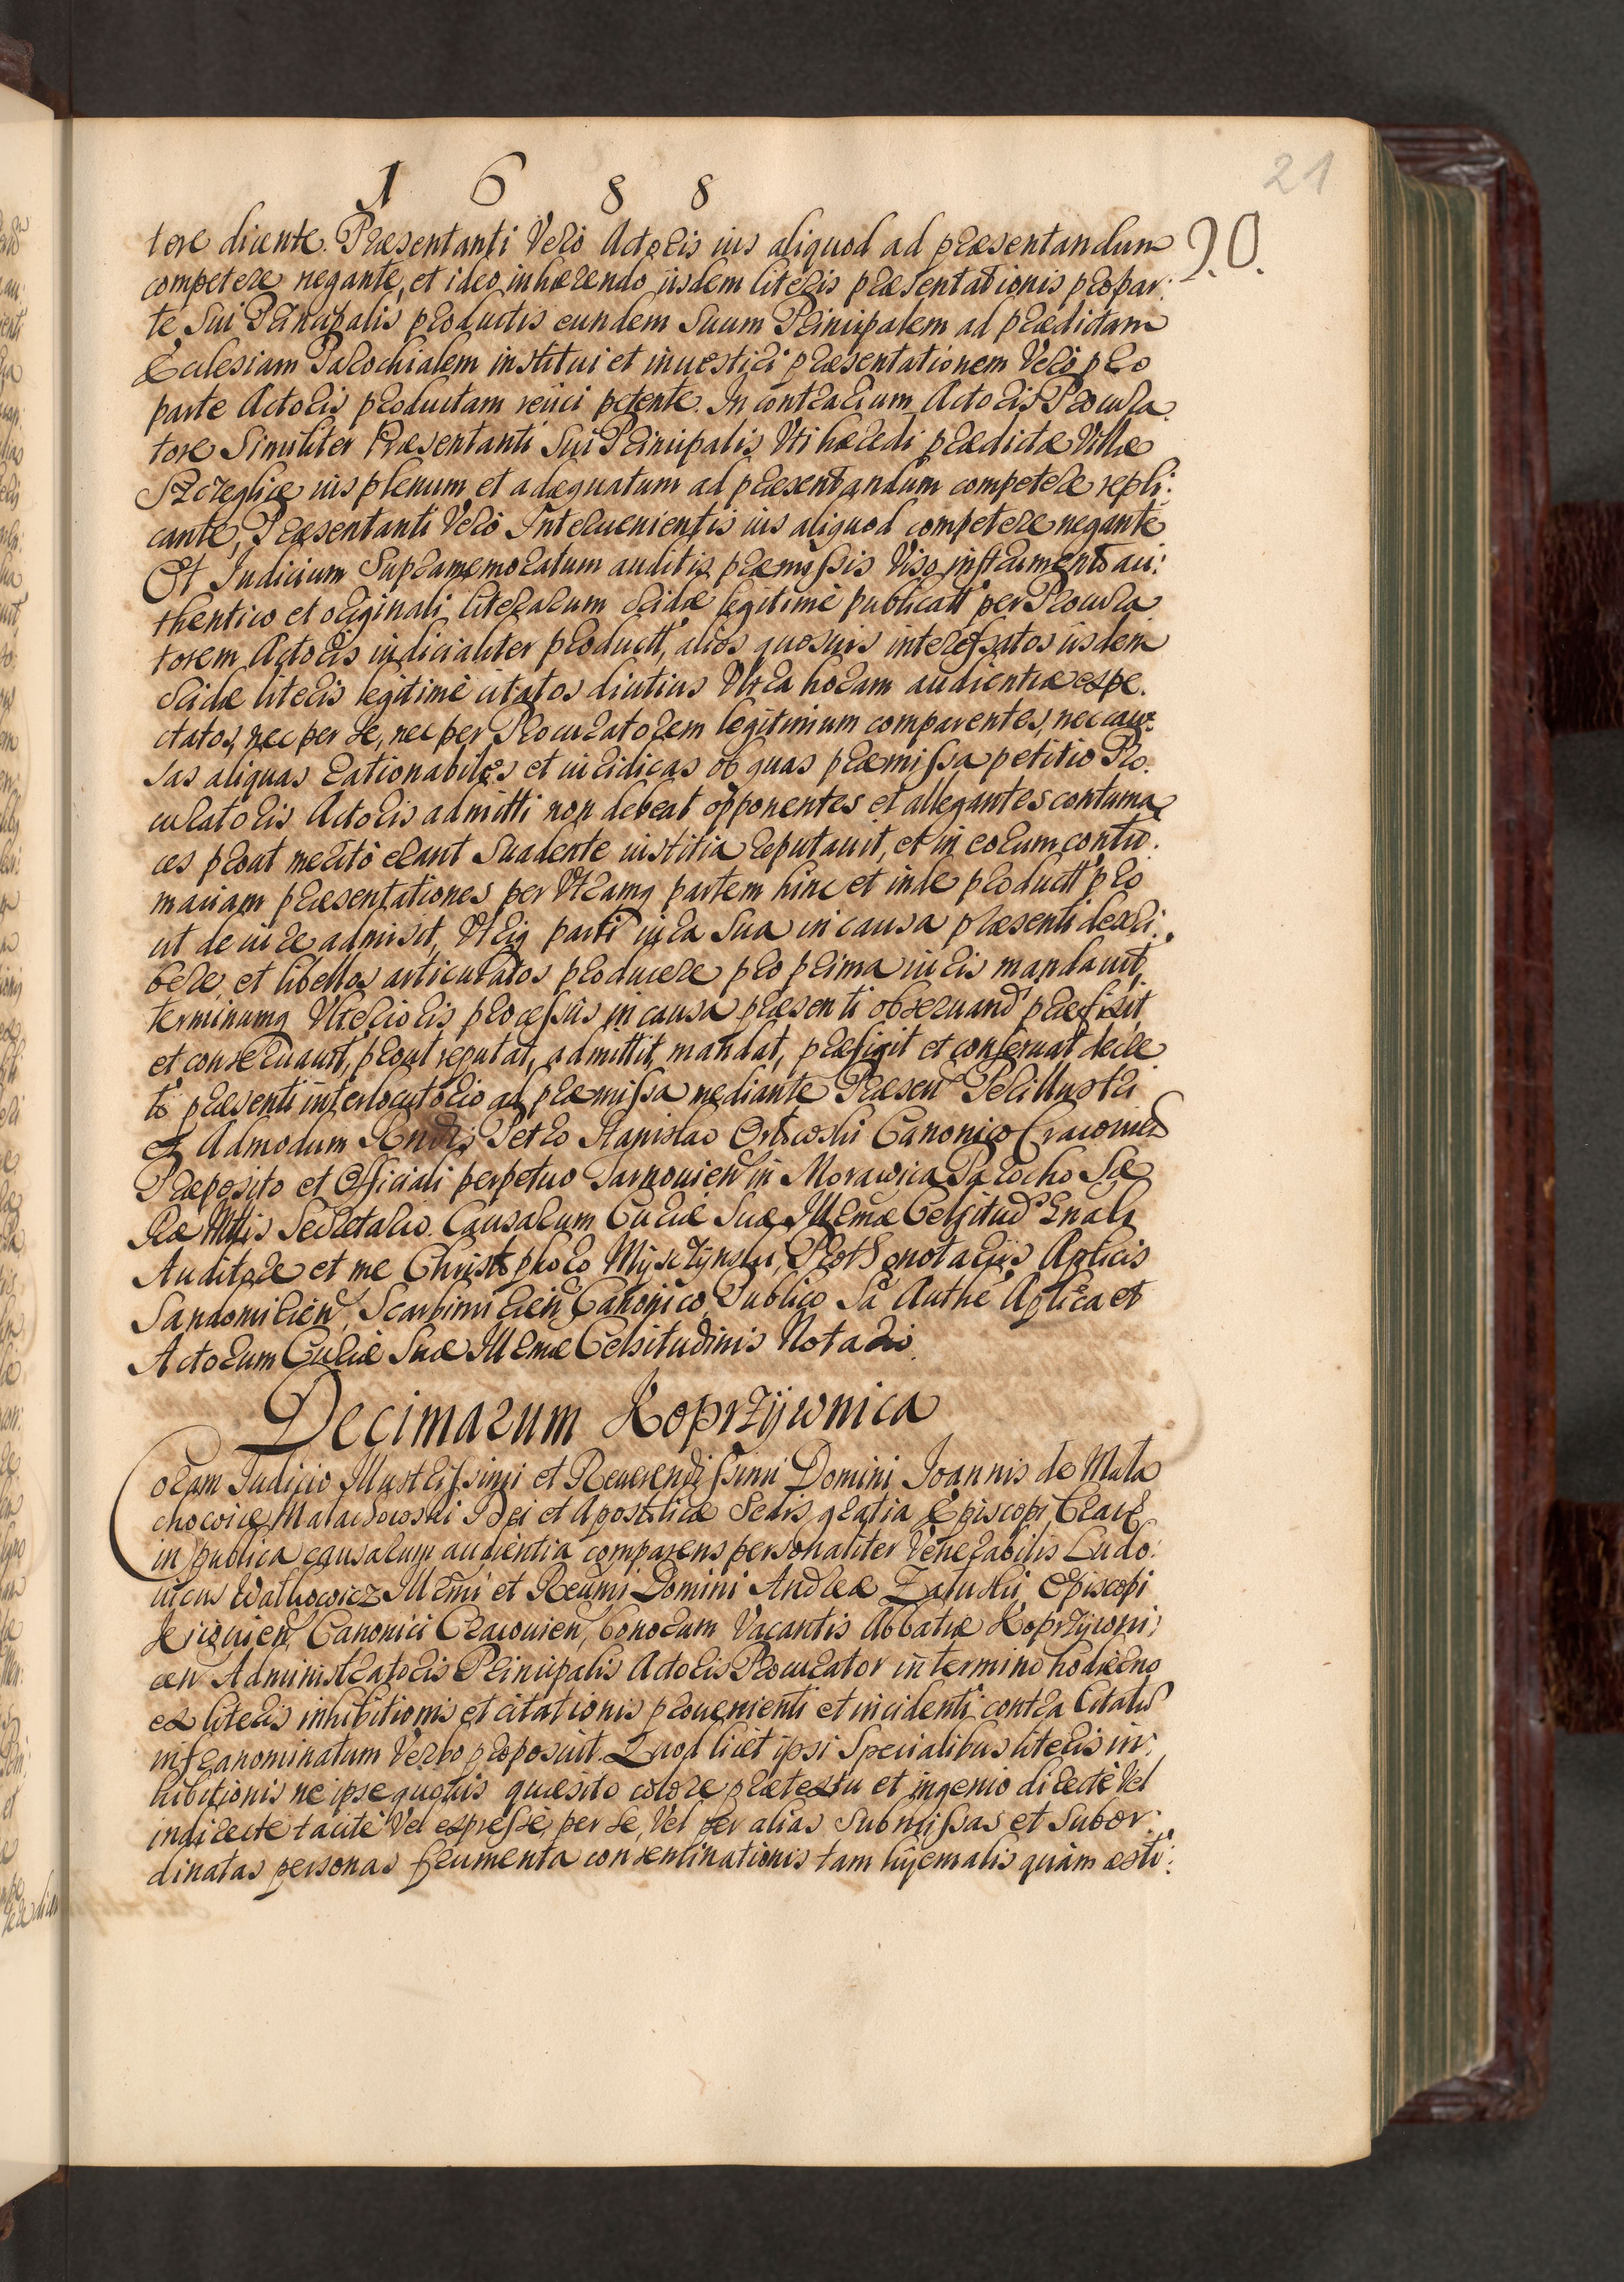 1688
21
20.
tore dicente. Præsentanti Verò Actoris ius aliquod ad præsentandum
competere negante, et ideo inhærendo iisdem literis præsentationis propar:
te sui Principalis productis eundem suum Principalem ad prædictam
Ecclesiam Parochialem institui et inuestiri præsentationem Verò pro
parte Actoris productam reiici petente. In contrarium Actoris Procura
tore Similiter Præsentanti Sui Principalis Vti hæredi prædictæ Villæ
ius plenum et adæquatum ad præsentandum competere repli:
cante, Præsentanti Verò Interuenientis ius aliquod competere negante
Et Iudicium Supramemoratum auditis præmissis Viso instrumento au:
thentico et originali literarum Cridæ legitimè publicatt per Procura
torem Actoris iudicialiter productt, alios quosuis interessatos iisdem
Cridæ literis legitimè citatos diutius Vltra horam audientiæ expe.
ctatos, nec per se, nec per Procuratorem legitimum comparentes, nec cau:
sas aliquas rationabiles et iuridicas ob quas præmissa petitio Pro.
curatoris Actoris admitti non debeat opponentes et allegantes contuma
ces prout meritò erant Suadente iustitia reputauit, et in eorum contu.
maciam præsentationes per Vtramq partem hinc et inde productt pro
ut de iure admisit, Vtriq parti iura Sua in causa præsenti dexri:
bere, et libellos articulatos producere pro prima iuris mandauit,
terminumq Vlterioris processûs in causa præsenti obseruand præfixit,
et conseruauit, prout reputat, admittit, mandat, præfigit et conseruat decre
to præsenti interlocutorio ad præmissa mediante Præsen Perillustri
et Admodum Rndis Petro Stanislao Orłowski Canonico Cracouien
Præposito et Officiali perpetuo Tarnouien in Morawica Parocho Sa
Ræ Mttis Secretario. Causarum Curiæ Suæ Illmæ Celsitud Gnali
Auditore et me Christophoro Myszynski, Prothonotariis Aplicis
Sandomirien, Scarbimirien Canonico, Publico Sâ Authê Aplica et
Actorum Curiæ Suæ Illmæ Celsitudinis Notario.
Decimarum Koprzywnica
Coram Iudicio Illustrissimi et Reuerendissimi Domini Ioannis de Mała
chowice Małachowski Dei et Apostolicæ Sedis gratia Episcopi Crac
in publica causarum audientia comparens personaliter Venerabilis Ludo:
uicus Walkowicz Illmi et Reumi Domini Andreæ Załuski Episcopi
Kiiouien, Canonici Cracouien, bonorum Vacantis Abbatiæ Koprzywni:
cen Administratoris Principalis Actoris Procurator in termino hodierno
ex literis inhibitionis et citationis prouenienti et incidenti contra Citatu
infranominatum Verbo proposuit. Quod licet ipsi Specialibus literis in:
hibitionis ne ipse quouis quæsito colore prætextu et ingenio directè Vel
indirecte tacitè Vel expressè, per se, Vel per alias Submissas et Subor:
dinatas personas frumenta conseminationis tam hyemalis quàm æsti: